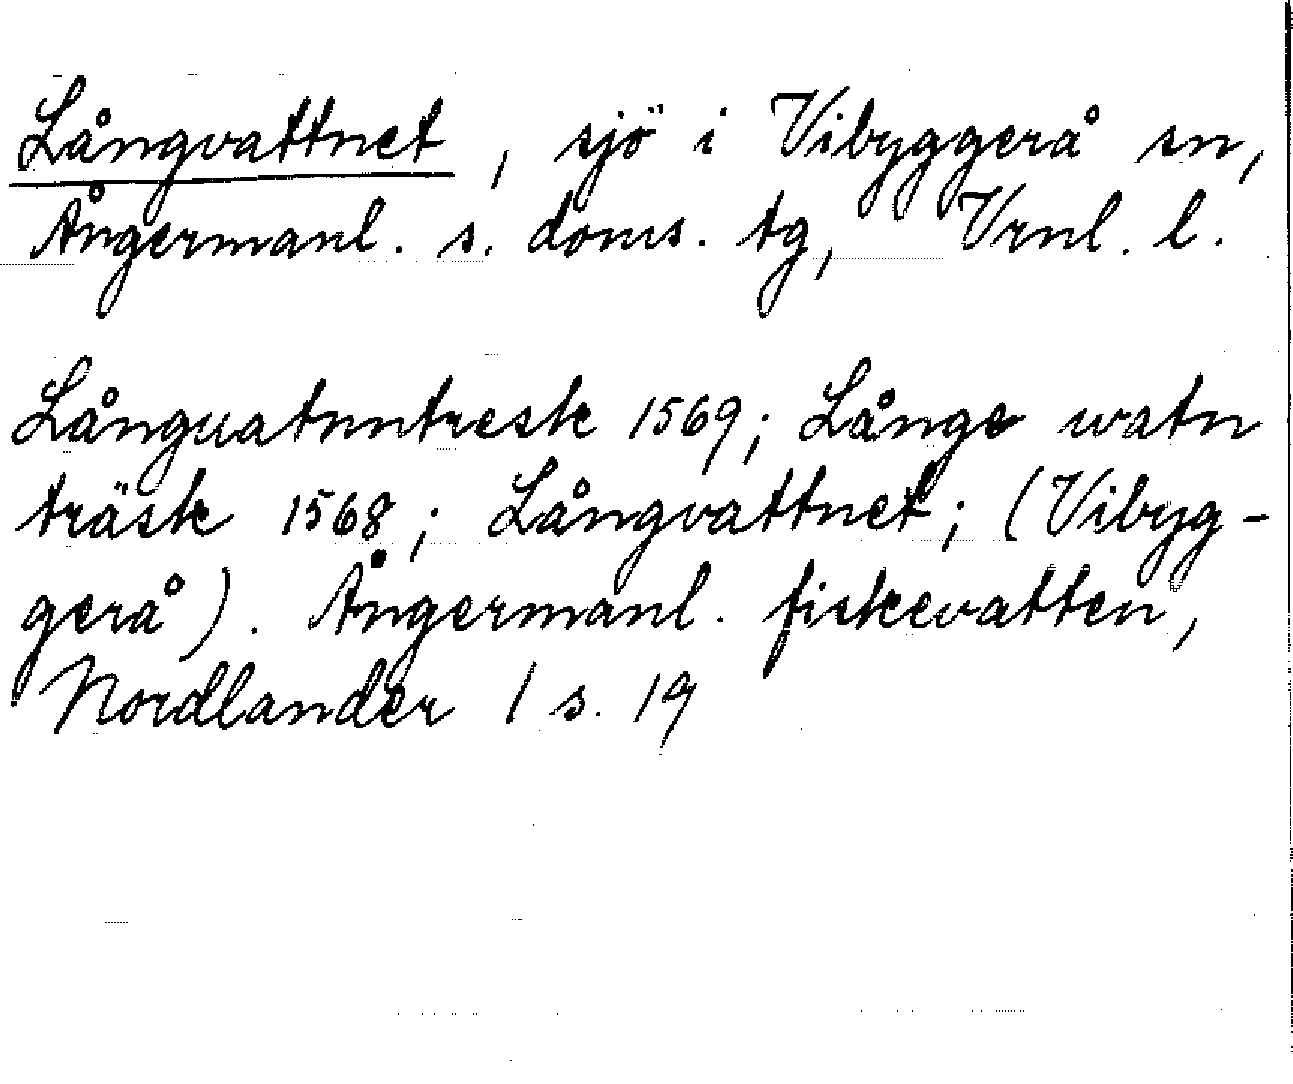 Långvattnet, sjö i Vibyggerå sn,
Ångermanl. s. doms. tg, Vrnl. l.
Långuatnntresk 1569; Långe watn
träsk 1568; Långvattnet; (Vibyg-
gerå). Ångermanl. fiskevatten,
Nordlander 1 s. 19